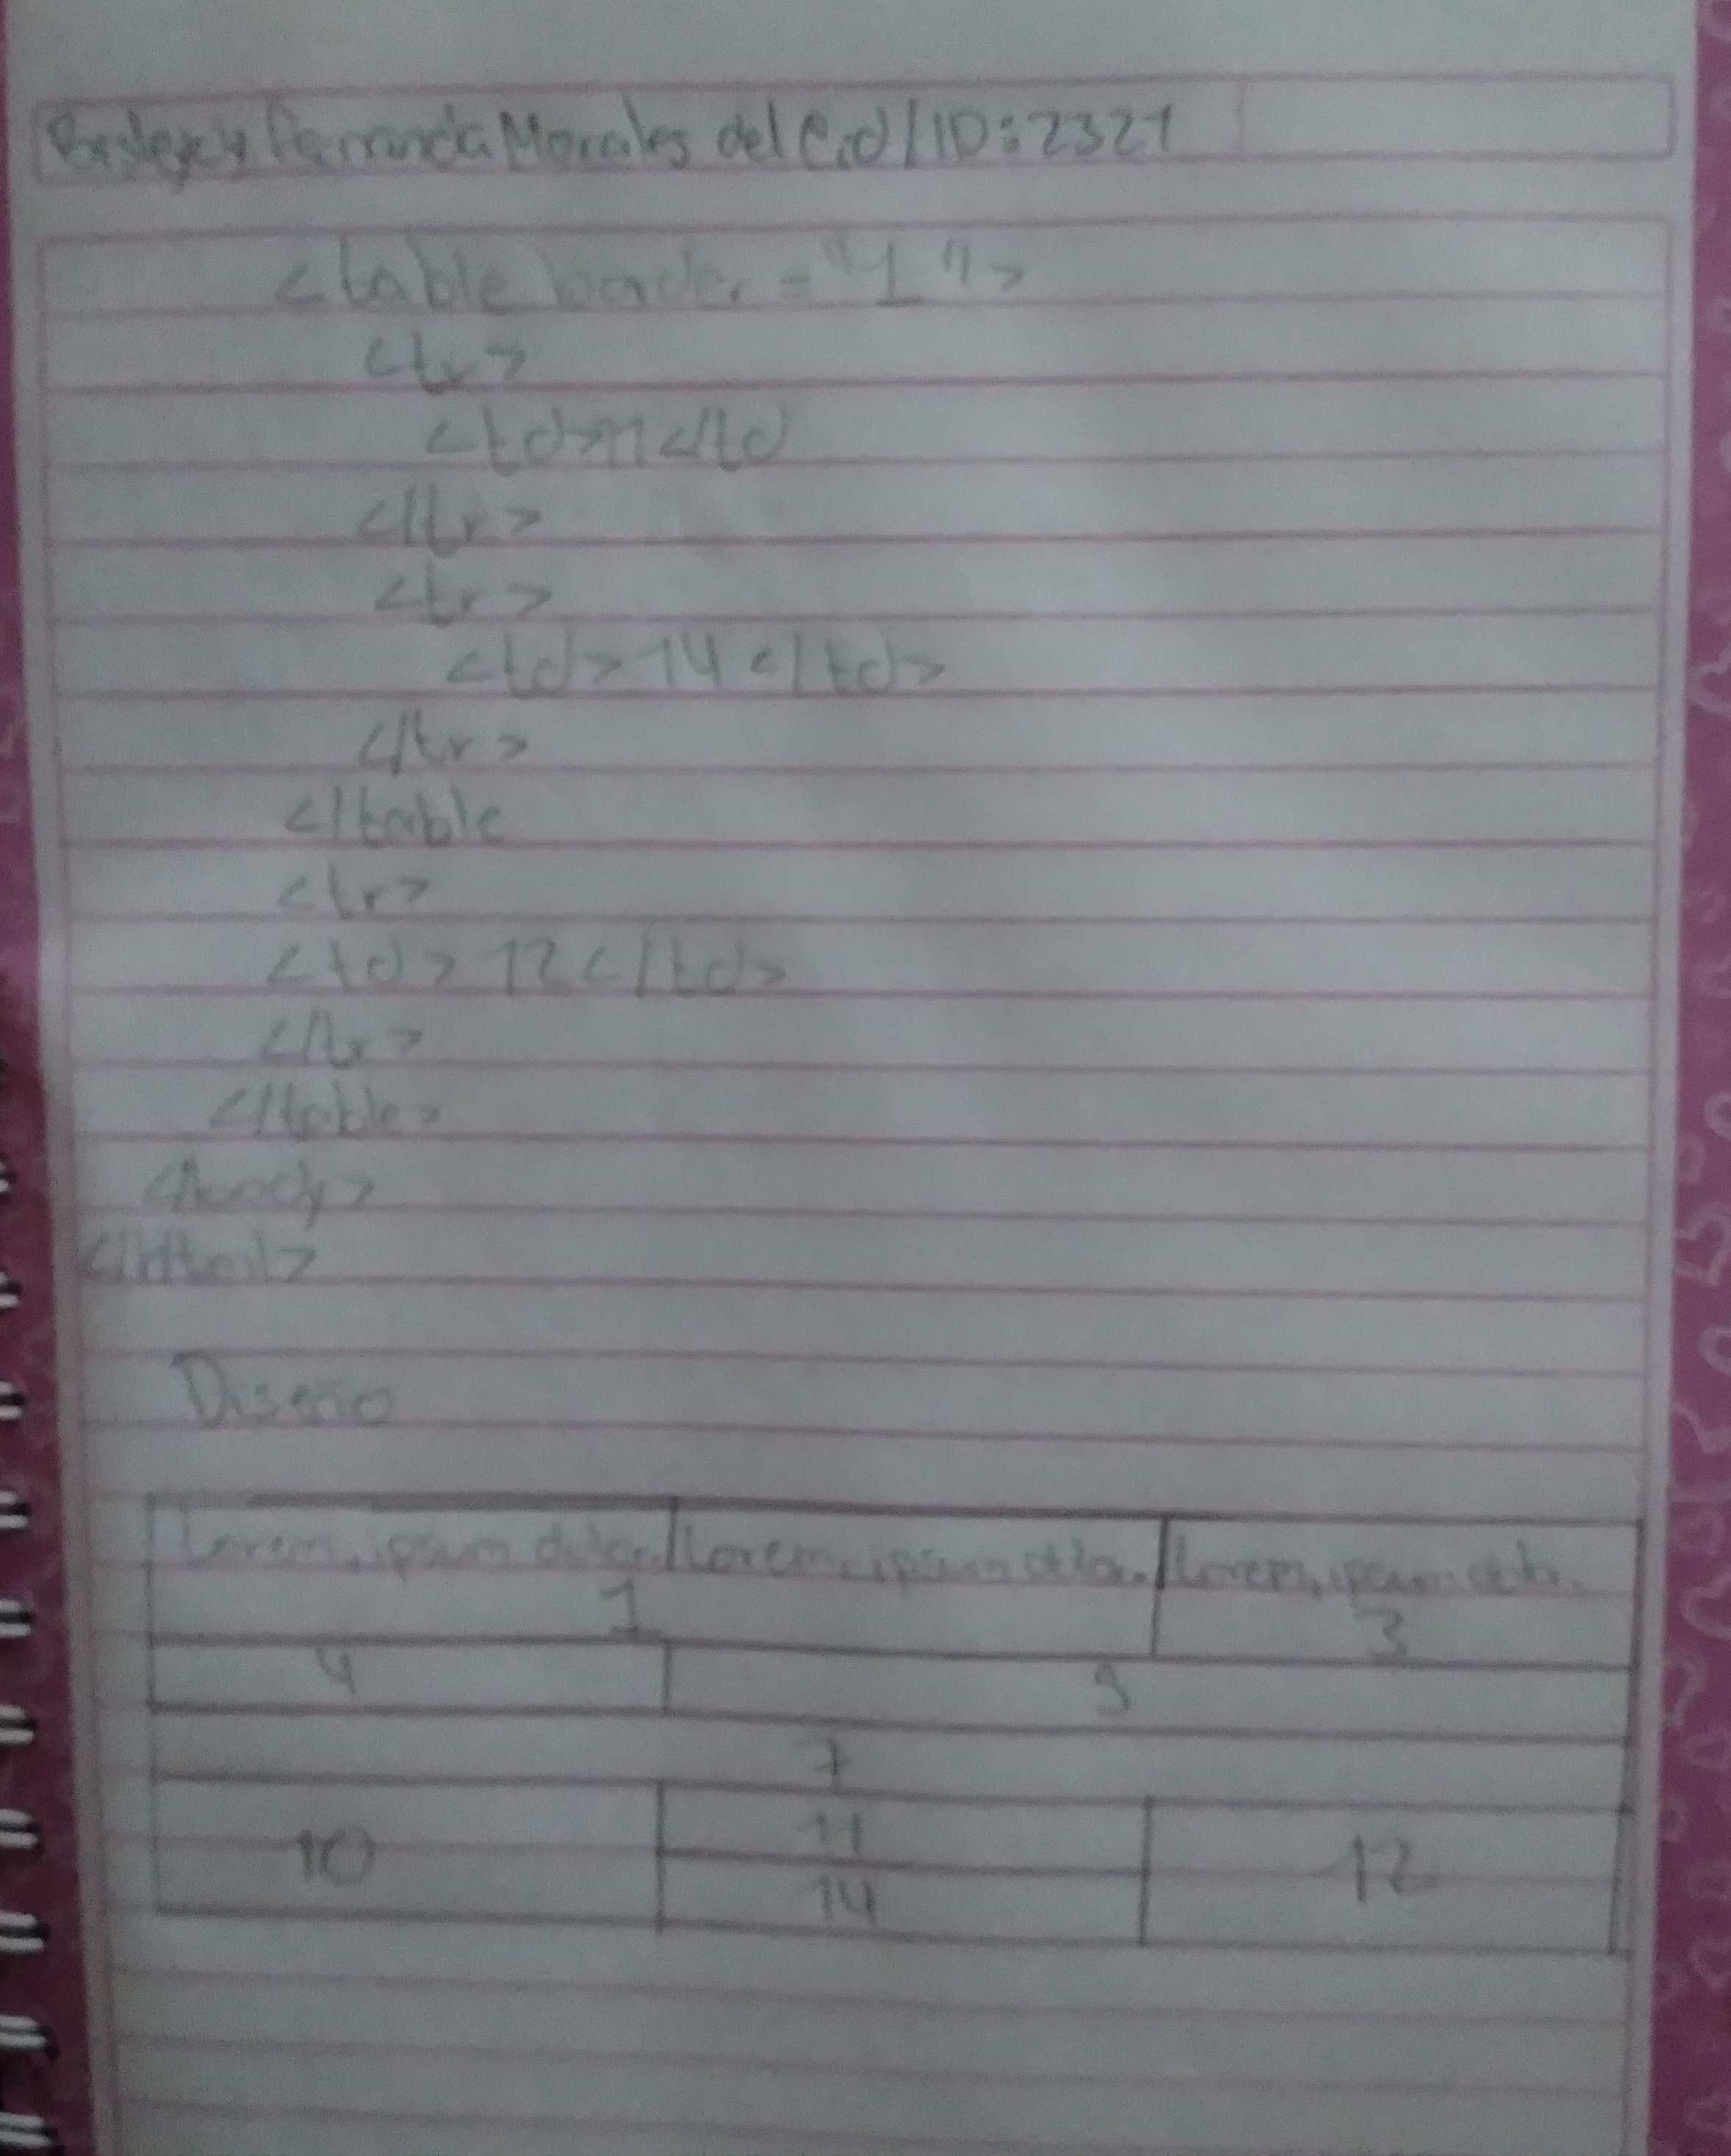 Fernanda Morales del Cid / ID: 2321
<table border = "1">
<tr>
<td>11</td
</tr>
<tr>
<td>14</td>
</tr>
</table
<tr>
<td>12</td>
</tr>
</table>
</body>
</Html>
Diseño
Lorem, ipsum dolor. Lorem, ipsum dolor. Lorem, ipsum dolor.
1 3
4 9
7
10 11 12
14